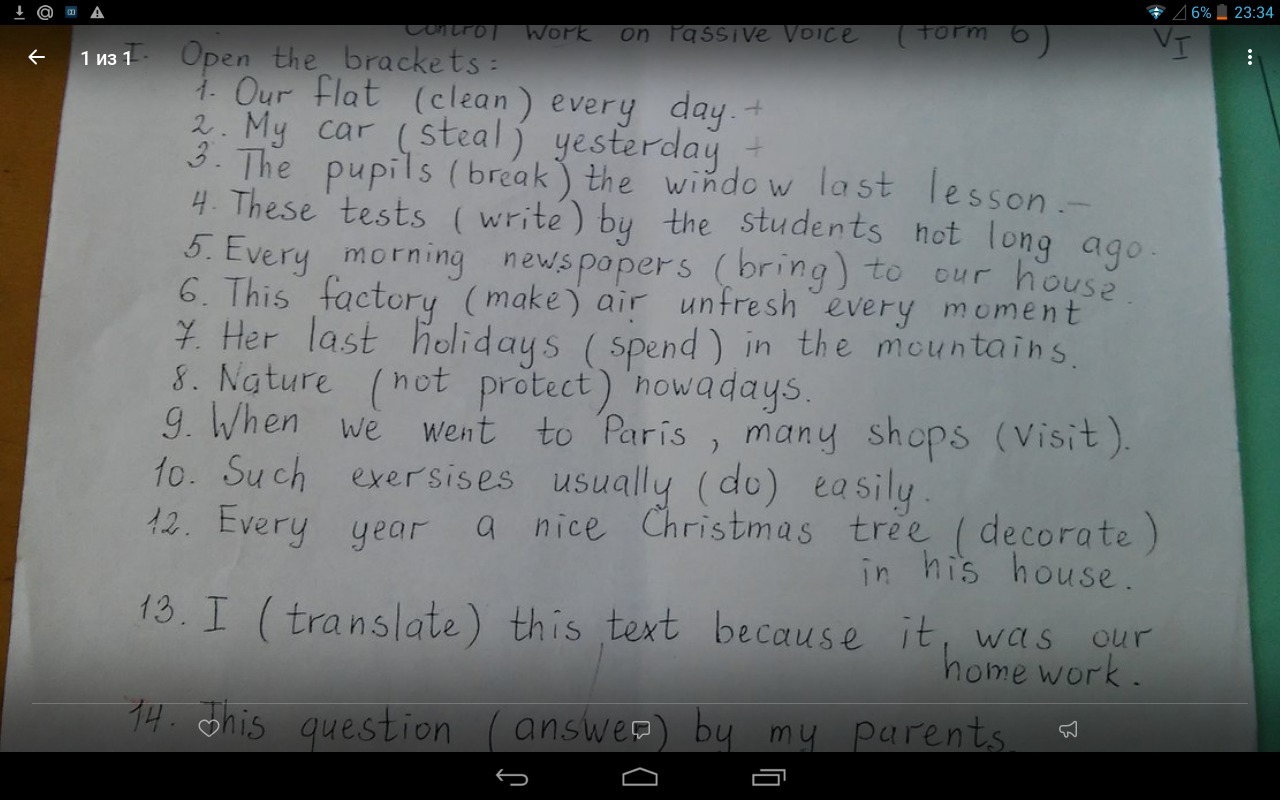 6% 23:34
Control work on Passive Voice (form 6) VI
1 из 1
I. Open the brackets:
1. Our flat (clean) every day. +
2. My car (steal) yesterday +
3. The pupils (break) the window last lesson. —
4. These tests (write) by the students not long ago.
5. Every morning newspapers (bring) to our house.
6. This factory (make) air unfresh every moment
7. Her last holidays (spend) in the mountains.
8. Nature (not protect) nowadays.
9. When we went to Paris, many shops (visit).
10. Such exersises usually (do) easily.
12. Every year a nice Christmas tree (decorate)
in his house.
13. I (translate) this text because it was our
homework.
14. This question (answer) by my parents.